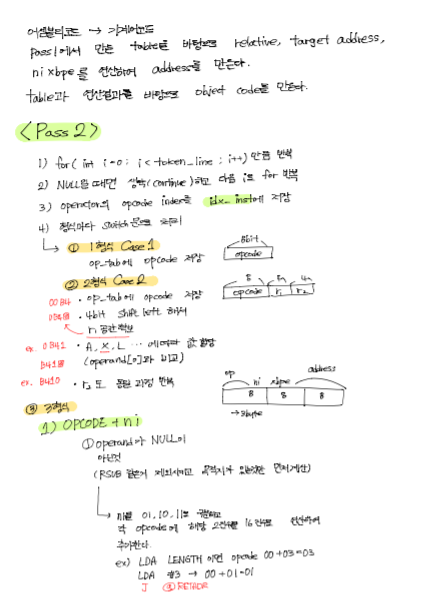 어셈블리코드 → 기계어코드
Pass1에서 만든 table을 바탕으로 relative, target address,
nixbpe를 연산하여 address를 만든다.
table과 연산결과를 바탕으로 object code를 만든다.
<Pass 2>
1) for( int i=0; i<token_line; i++) 만큼 반복
2) NULL일때면 생략(continue)하고 다음 i로 for 반복
3) operator의 opcode index를 idx_inst에 저장
4) 형식마다 switch문으로 처리
① 1형식 Case 1
op_tab에 opcode 저장
8bit
opcode
② 2형식 Case 2
00B4 • op_tab에 opcode 저장
8 4 4
opcode r1 r2
• 4bit shift left 해서
r1 공간확보
ex. 0B41 • A, X, L … 에 따라 값 할당
(operand[0]와 비교)
ex. B410 • r2 도 동일 과정 반복
③ 3형식
op ni xbpe address
8 8 8
→ 3byte
1) OPCODE + ni
① operand가 NULL이
아닌것
(RSUB 같은거 제외시키고 목적지가 있는것만 먼저계산)
ni를 01, 10, 11로 구분하고
각 opcode에 해당 2진수를 16진수로 연산하여
추가한다.
ex) LDA LENGTH 이면 opcode 00+03=03
LDA #3 → 00+01=01
J @RETADR